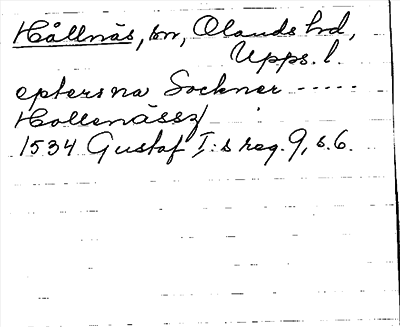 Hållnäs, sn, Olands hd,
Upps. l.
epters na Sockner -----
Hollenässz
1534 Gustaf I:s reg. 9, s. 6.